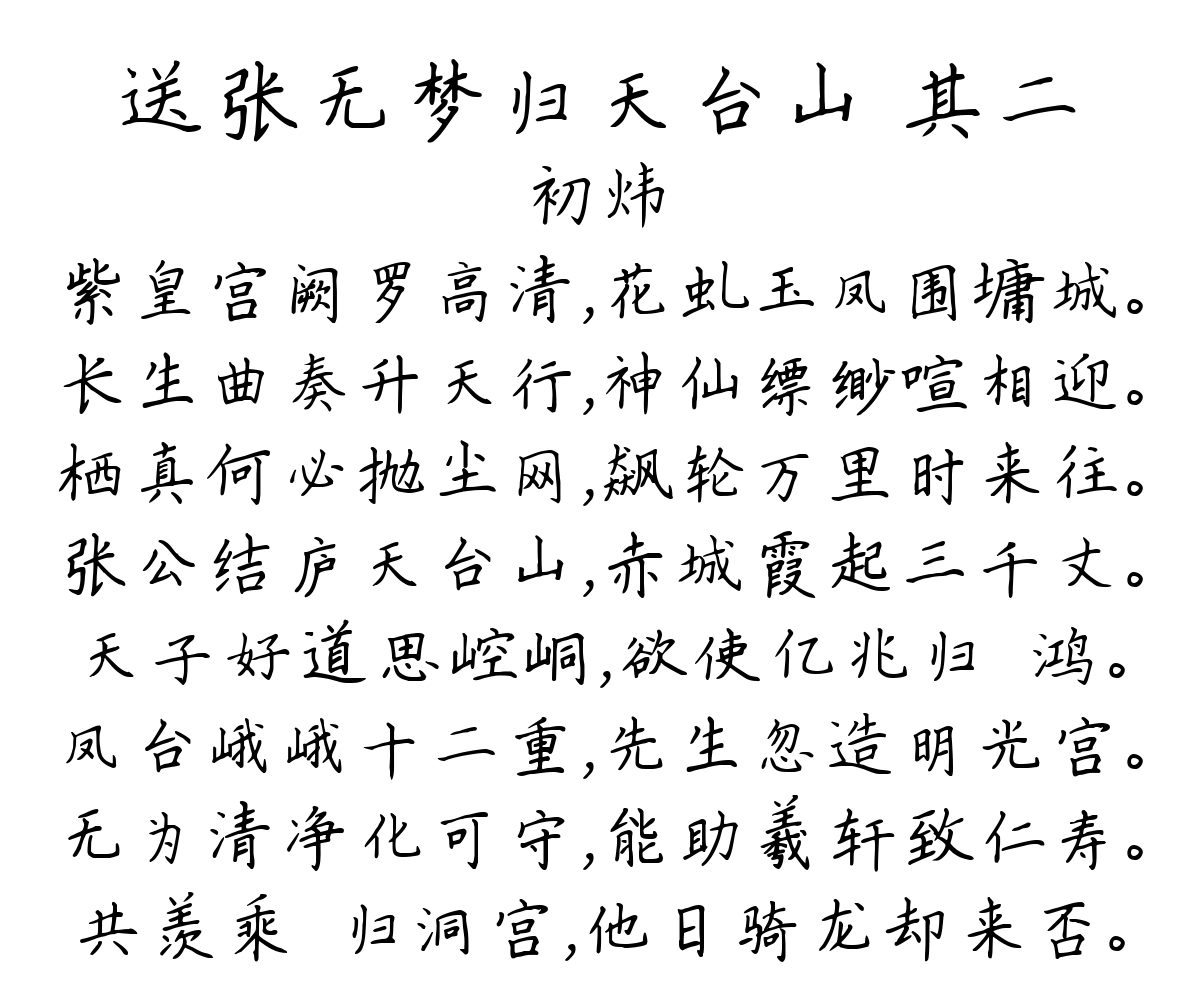 送张无梦归天台山 其二
初炜
紫皇宫阙罗高清,花虬玉凤围墉城。
长生曲奏升天行,神仙缥缈喧相迎。
栖真何必抛尘网,飙轮万里时来往。
张公结庐天台山,赤城霞起三千丈。
天子好道思崆峒,欲使亿兆归 鸿。
凤台峨峨十二重,先生忽造明光宫。
无为清净化可守,能助羲轩致仁寿。
共羡乘 归洞宫,他日骑龙却来否。